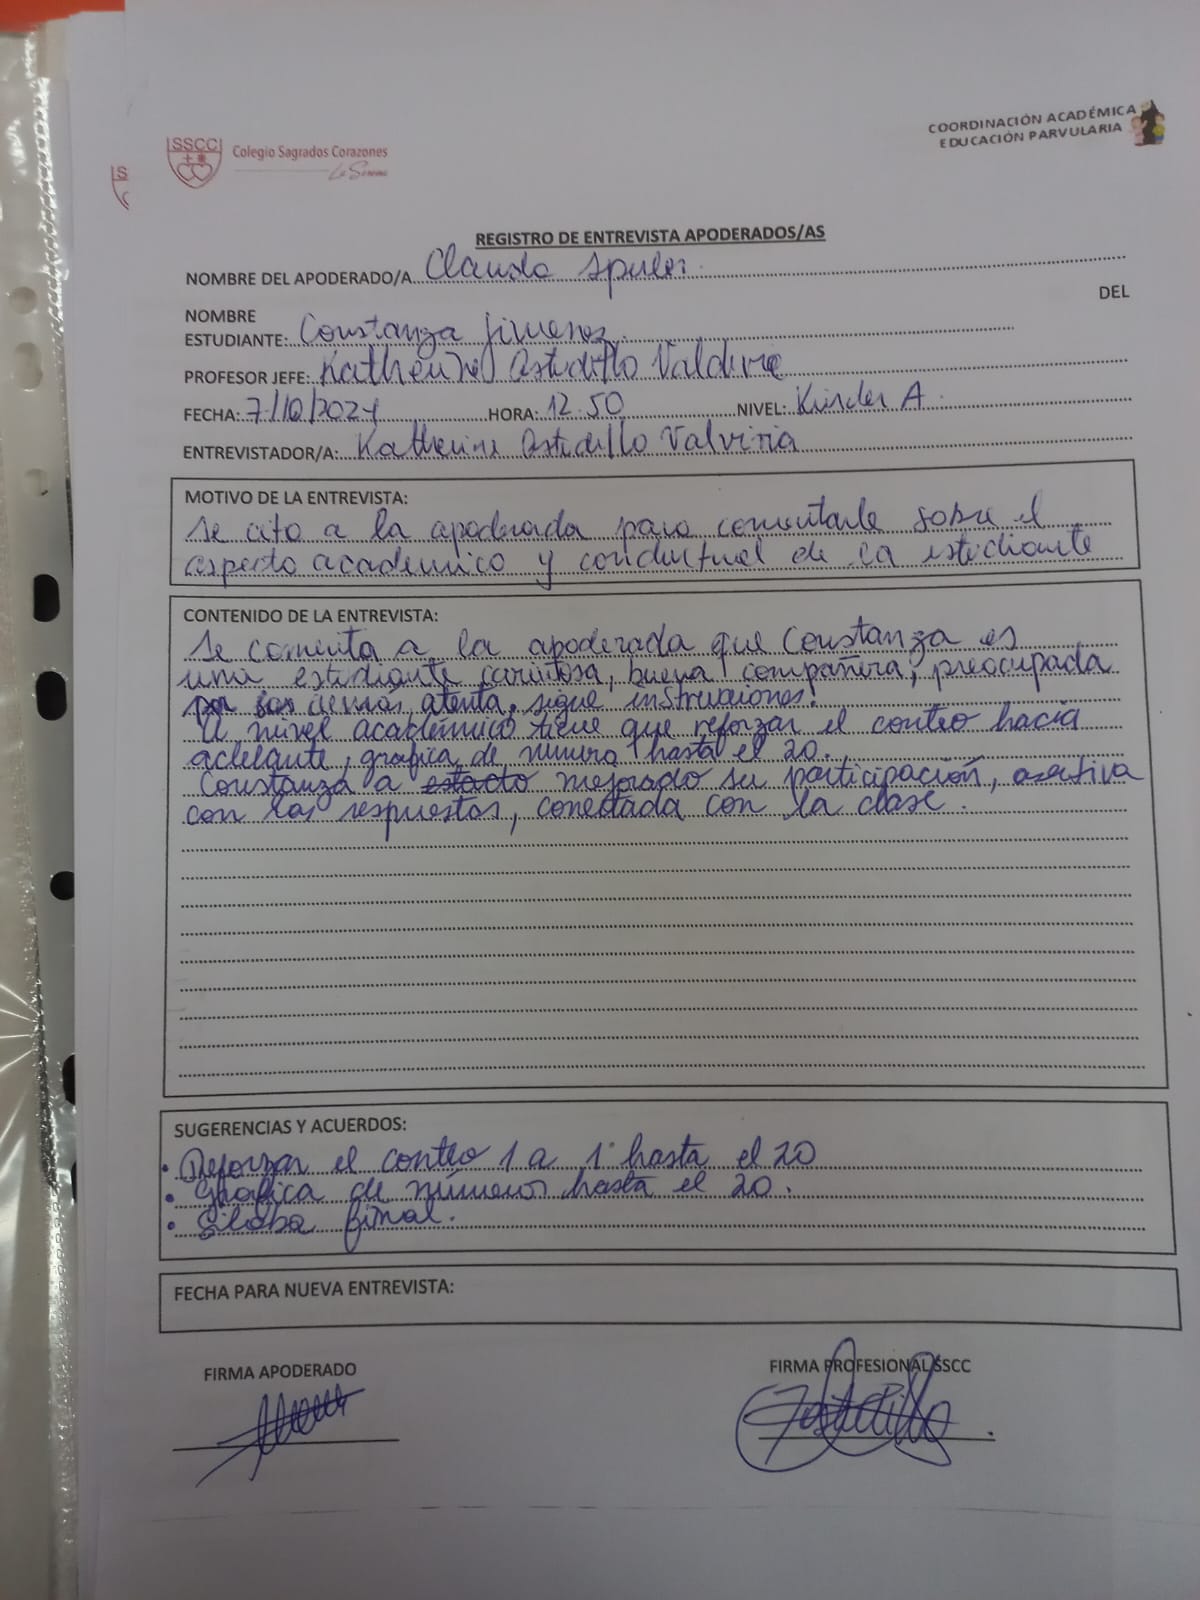 COORDINACIÓN ACADÉMICA
EDUCACIÓN PARVULARIA
SSCC
Colegio Sagrados Corazones
La Serena
REGISTRO DE ENTREVISTA APODERADOS/AS
NOMBRE DEL APODERADO/A Claudia
NOMBRE DEL
ESTUDIANTE: Constanza Jimenez
PROFESOR JEFE: Katherine Astudillo Valdivia
FECHA: 7/10/2024 HORA: 12.50 NIVEL: Kinder A.
ENTREVISTADOR/A: Katherine Astudillo
MOTIVO DE LA ENTREVISTA:
Se cito a la apoderada para comentarle sobre el
aspecto académico y conductual de la estudiante
CONTENIDO DE LA ENTREVISTA:
Se comenta a la apoderada que Constanza es
una estudiante cariñosa, buena compañera, preocupada
por demás, atenta, sigue instrucciones.
A nivel académico tiene que reforzar el conteo hacia
adelante, grafica de numero hasta el 20.
Constanza a estado mejorado su participación, asertiva
con las respuestas, conectada con la clase.
SUGERENCIAS Y ACUERDOS:
• Reforzar el conteo 1 a 1 hasta el 20
• Grafica de números hasta el 20.
• Silaba final.
FECHA PARA NUEVA ENTREVISTA:
FIRMA APODERADO FIRMA PROFESIONAL SSCC